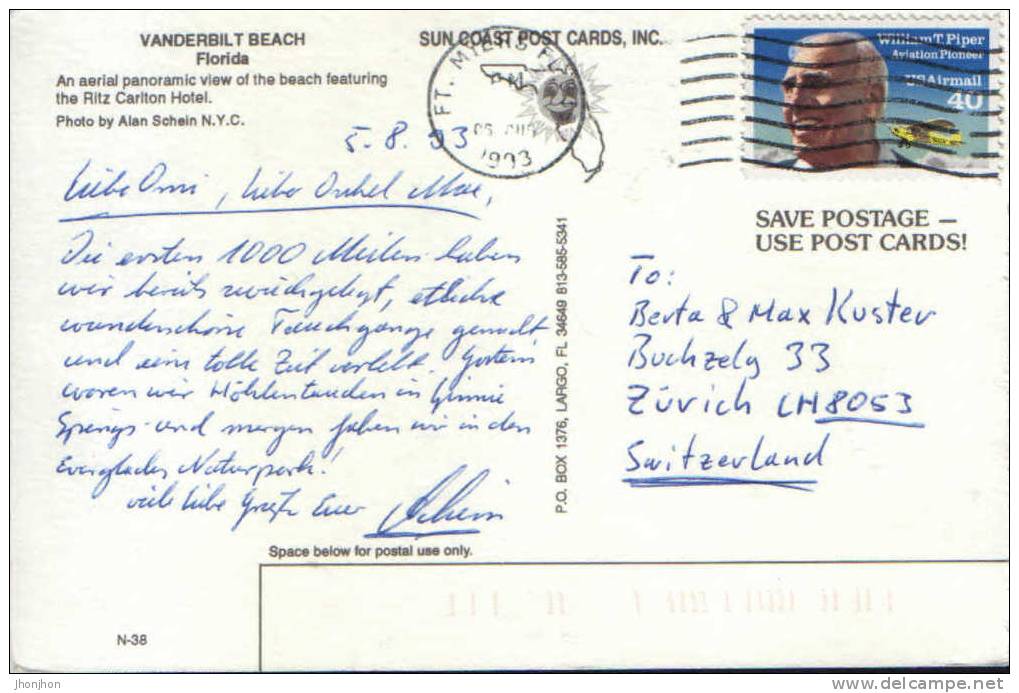 VANDERBILT BEACH
Florida
An aerial panoramic view of the beach featuring
the Ritz Carlton Hotel.
Photo by Alan Schein N.Y.C.
SUN COAST POST CARDS, INC.
FT. MYERS FL
PM
1993
William T. Piper
Aviation Pioneer
USAirmail
40
SAVE POSTAGE –
USE POST CARDS!
5.8.93
Liebe Omi, lieber Onkel Max,
Die ersten 1000 Meilen haben
wir bereits zurückgelegt, etliche
wunderschöne Tauchgänge gemacht
und eine tolle Zeit verlebt. Gestern
waren wir Höhlentauchen in Ginnie
Springs und morgen fahren wir in den
Everglades Naturpark!
viele liebe Grüsse Euer
P.O. BOX 1376, LARGO, FL 34649 813-585-5341
To:
Berta & Max Kuster
Buchzelg 33
Zürich CH8053
Switzerland
Space below for postal use only.
N-38
jhonjhon
delcampe.net